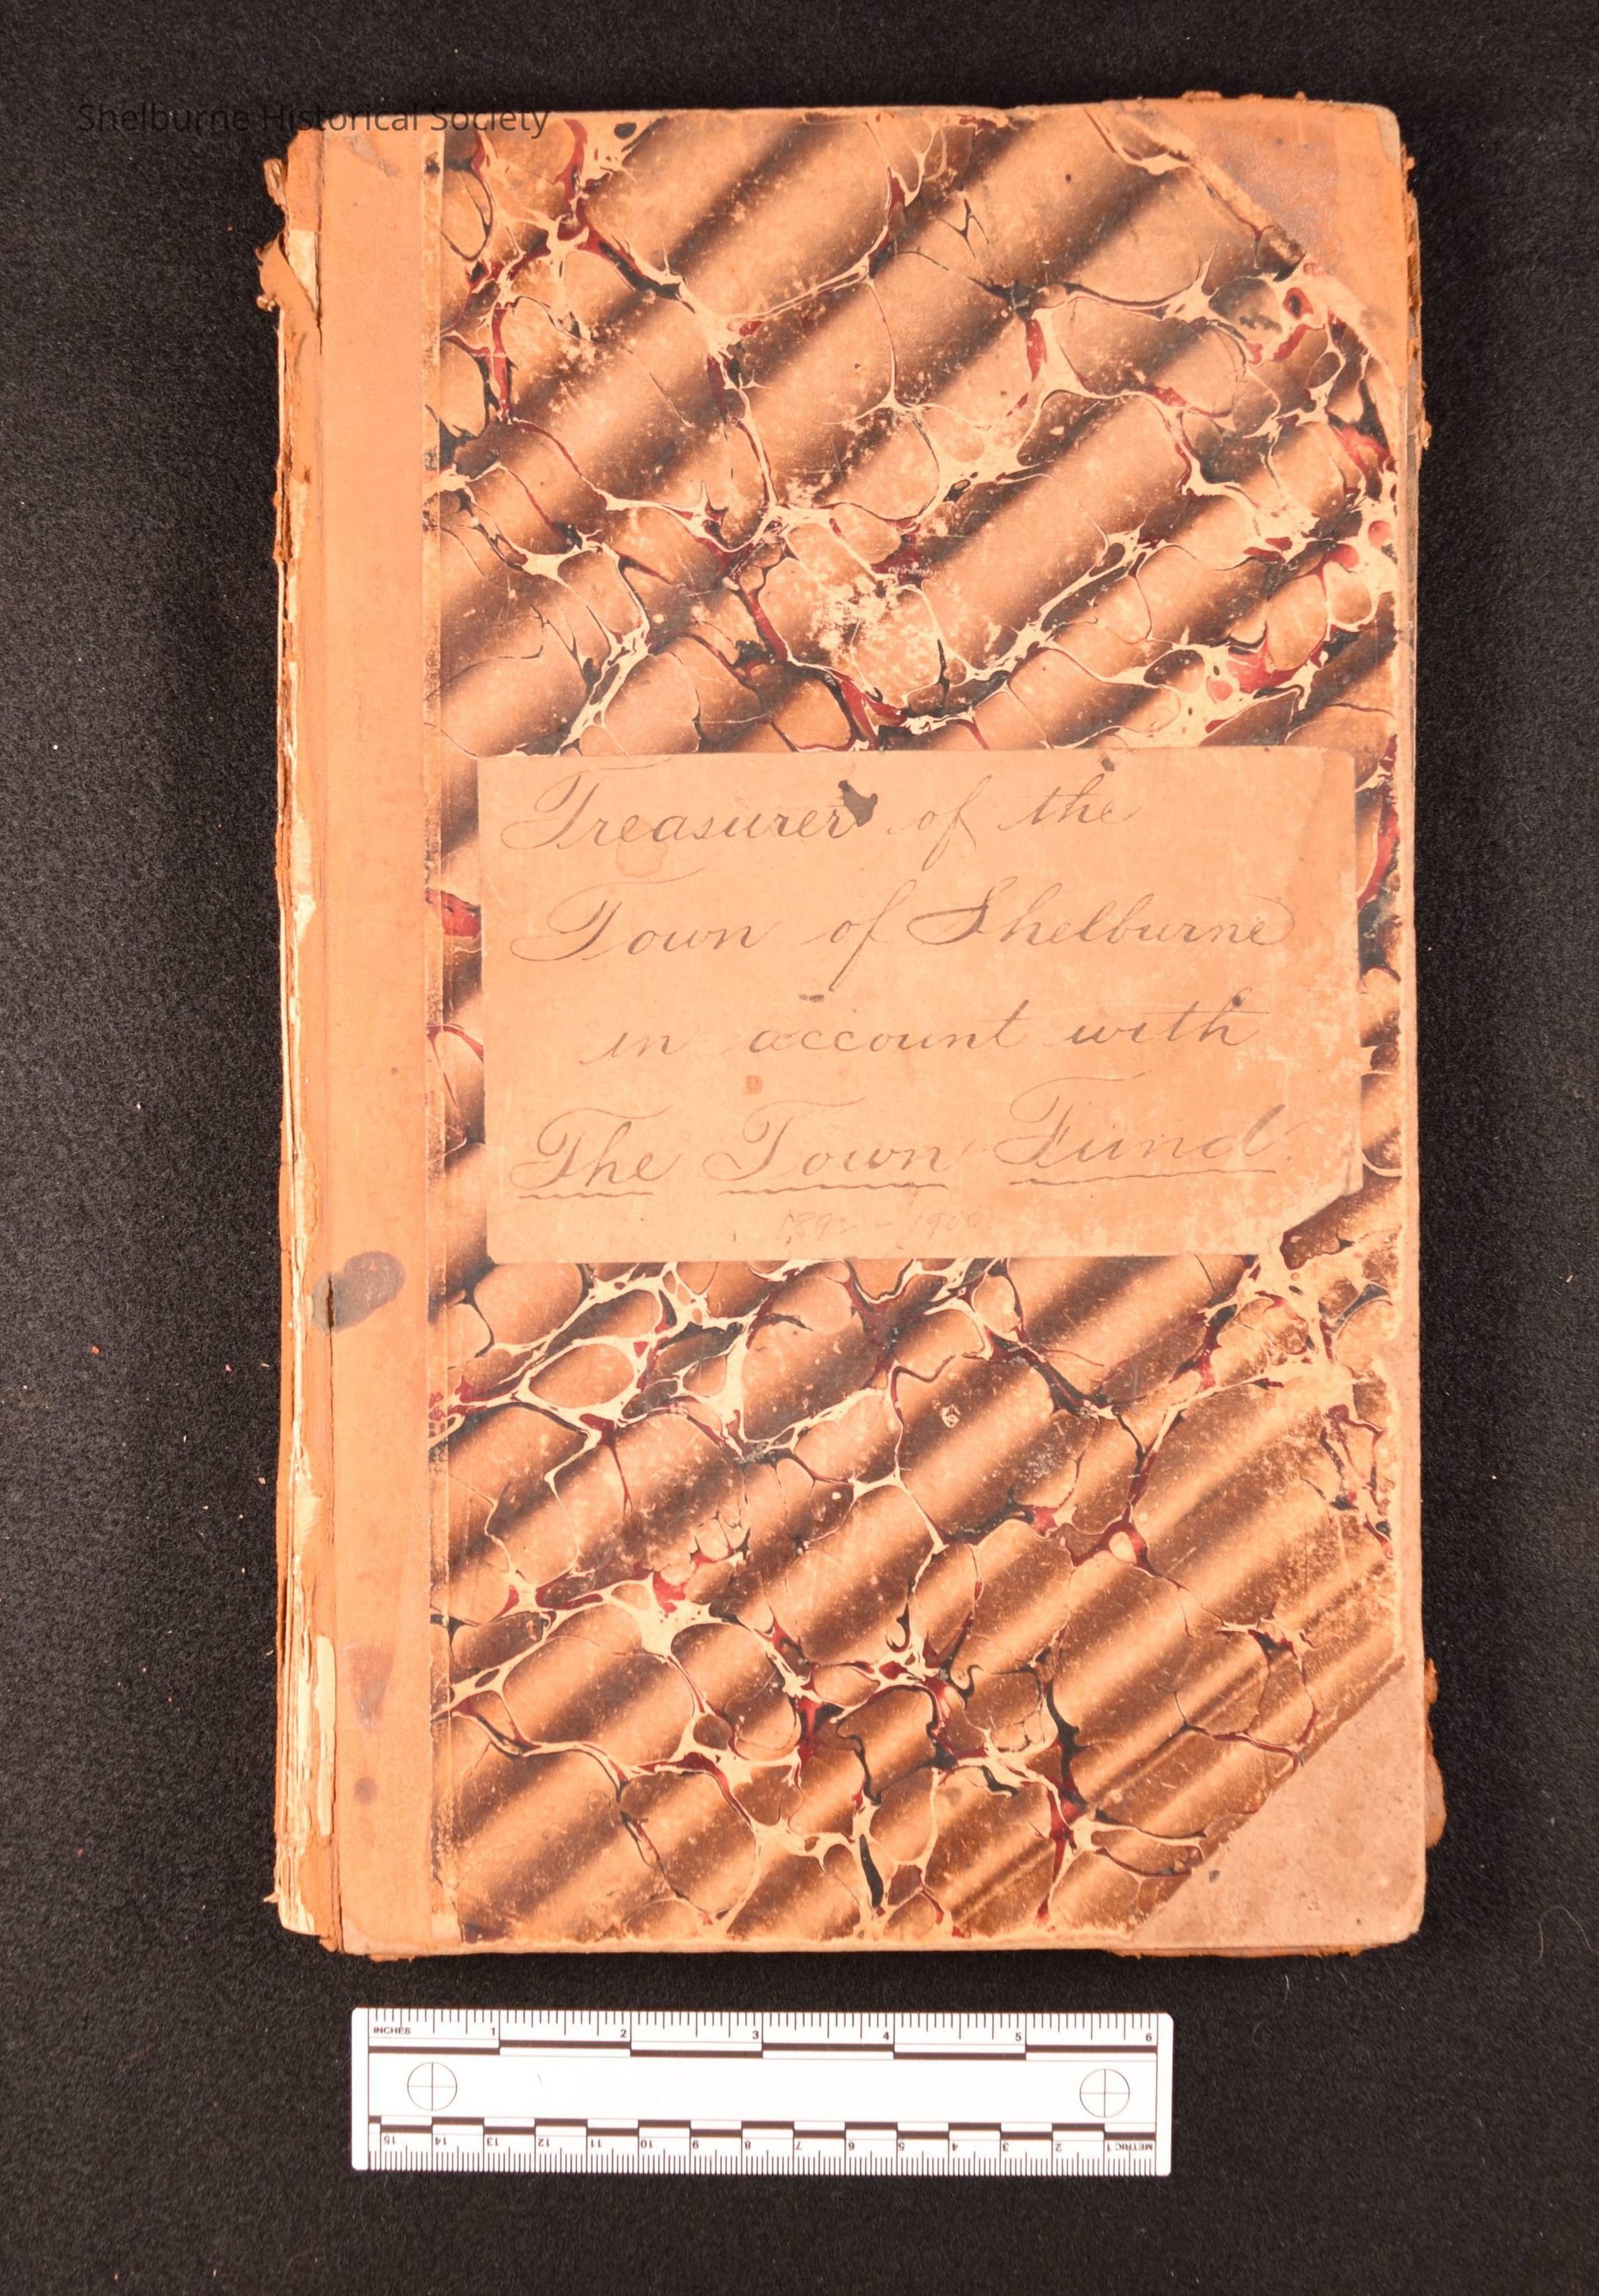 Shelburne Historical Society
Treasurer of the
Town of Shelburne
in account with
The Town Fund.
INCHES 1 2 3 4 5 6
15 14 13 12 11 10 9 8 7 6 5 4 3 2 1 METRIC